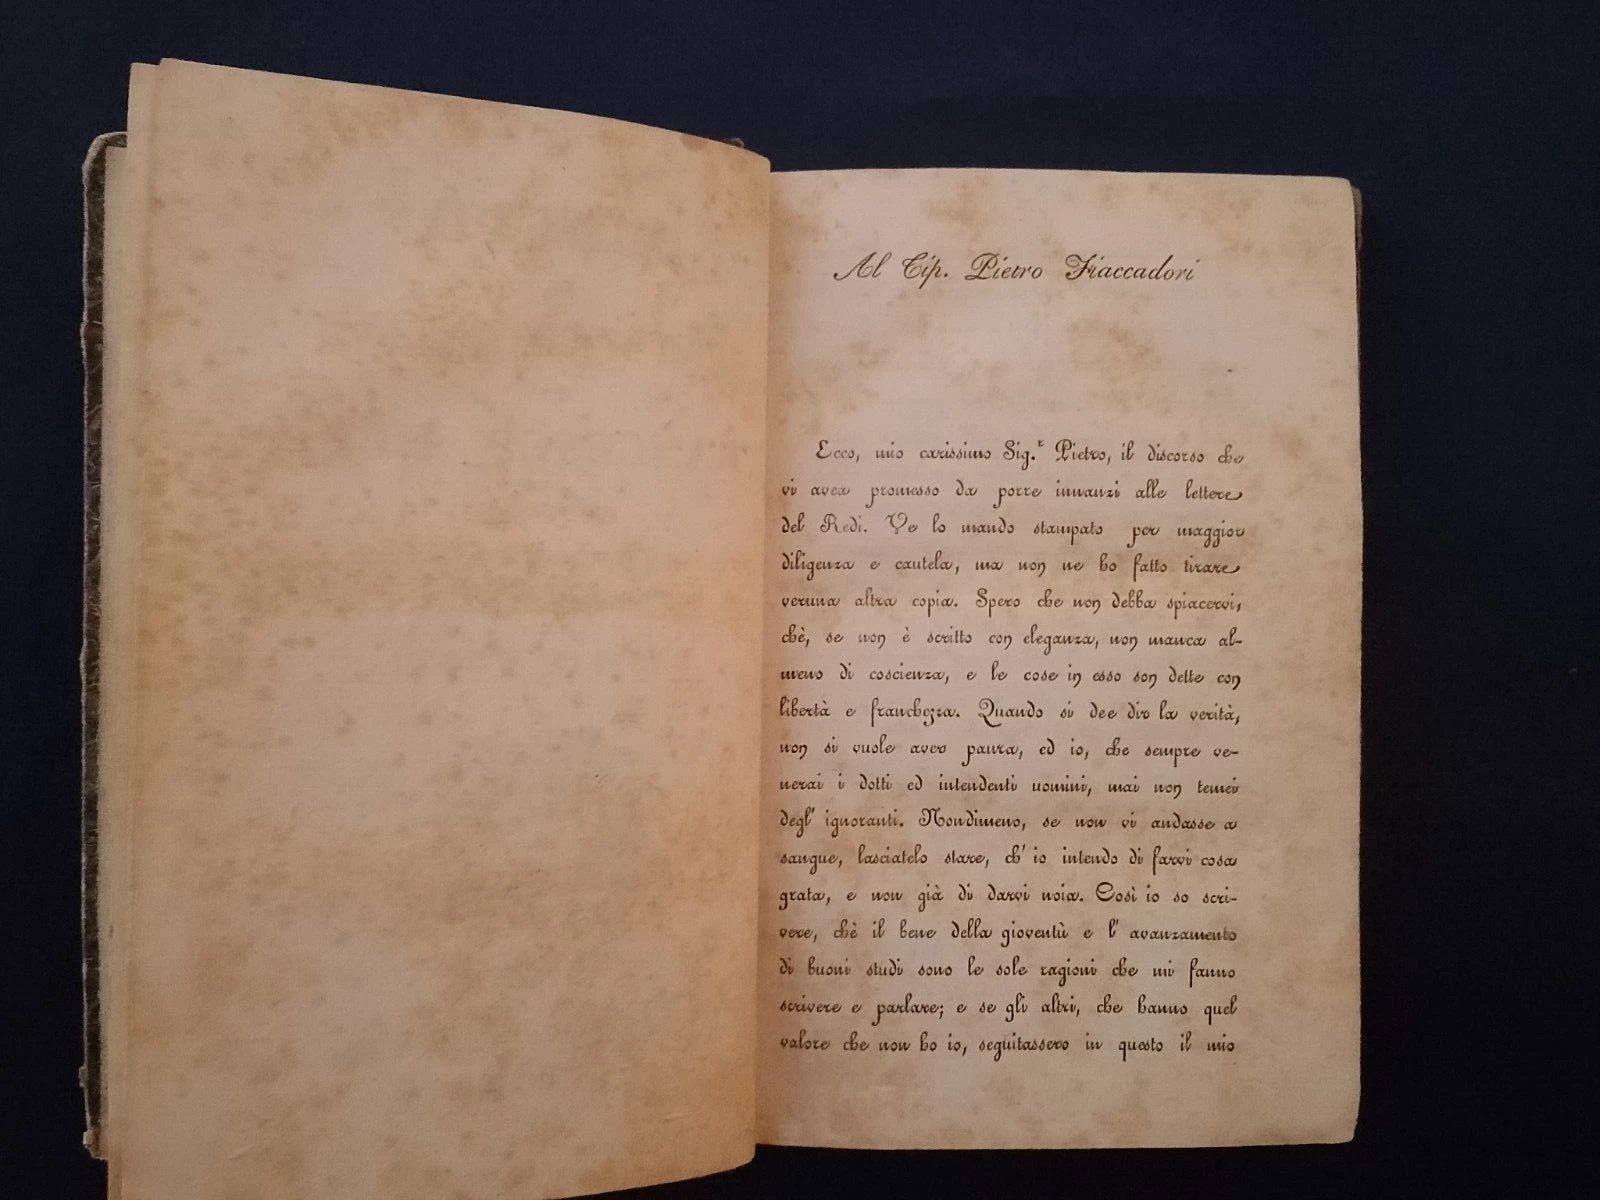 Al Tip. Pietro Fiaccadori
Ecco, mio carissimo Sig.r Pietro, il discorso che
vi avea promesso da porre innanzi alle lettere
del Redi. Ve lo mando stampato per maggior
diligenza e cautela, ma non ne ho fatto tirare
veruna altra copia. Spero che non debba spiacervi,
chè, se non è scritto con eleganza, non manca al-
meno di coscienza, e le cose in esso son dette con
libertà e franchezza. Quando si dee dir la verità,
non si vuole aver paura, ed io, che sempre ve-
nerai i dotti ed intendenti uomini, mai non temei
degl' ignoranti. Nondimeno, se non vi andasse a
sangue, lasciatelo stare, ch' io intendo di farvi cosa
grata, e non già di darvi noia. Così io so scri-
vere, chè il bene della gioventù e l' avanzamento
di buoni studi sono le sole ragioni che mi fanno
scrivere e parlare; e se gli altri, che hanno quel
valore che non ho io, seguitassero in questo il mio